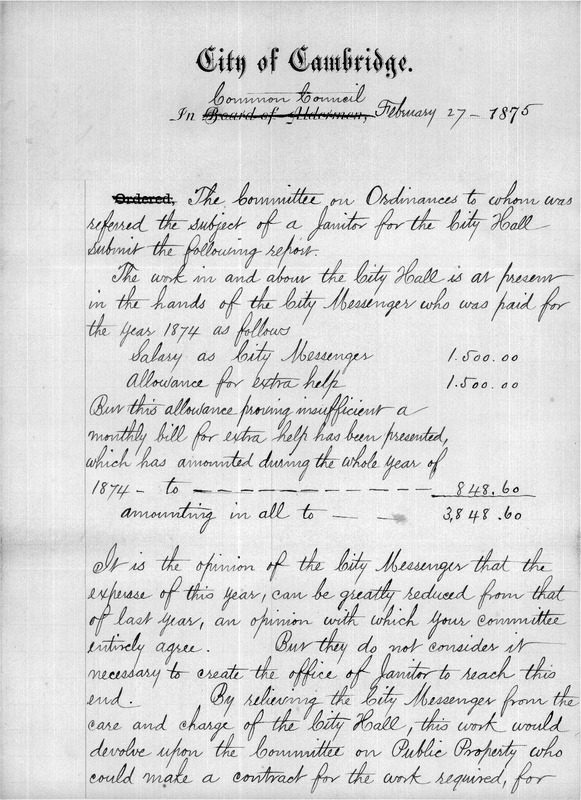 City of Cambridge.
Common Council
In Board of Aldermen, February 27 - 1875
Ordered, The Committee on Ordinances to whom was
referred the subject of a Janitor for the City Hall
Submit the following report.
The work in and about the City Hall is at present
in the hands of the City Messenger who was paid for
the year 1874 as follows
Salary as City Messenger 1.500.00
Allowance for extra help 1.500.00
But this allowance proving insufficient a
monthly bill for extra help has been presented,
which has amounted during the whole year of
1874 - to - - - - - - - - - - - - 848.60
amounting in all to - - 3,848.60
It is the opinion of the City Messenger that the
expense of this year, can be greatly reduced from that
of last year, an opinion with which your committee
entirely agree. But they do not consider it
necessary to create the office of Janitor to reach this
end. By relieving the City Messenger from the
care and charge of the City Hall, this work would
devolve upon the Committee on Public Property who
could make a contract for the work required, for